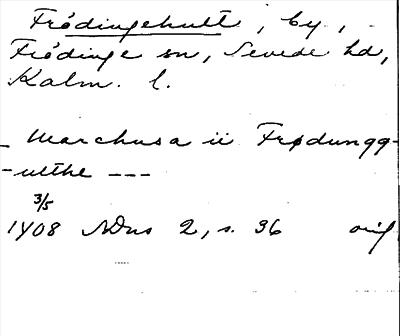 Frödingehult, by,
Frödinge sn, Sevede hd,
Kalm. l.
_ Marchusa ii Frødungg-
-ulthe ---
3/5
1408 NDns 2, s. 36 orig